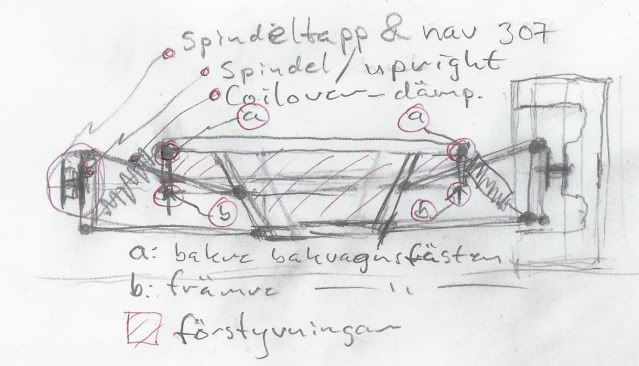 spindeltapp & nav 307
spindel/upright
Coilover-dämp.
a a
b b
a: bakre bakvagnsfästen
b: främre — " —
förstyvningar